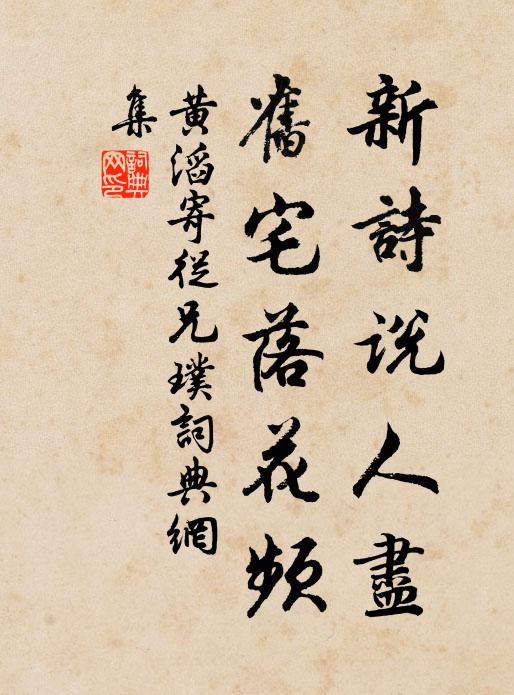 新詩說人盡
舊宅落花頻
黃滔寄從兄璞詞典網
集
詞典
网印